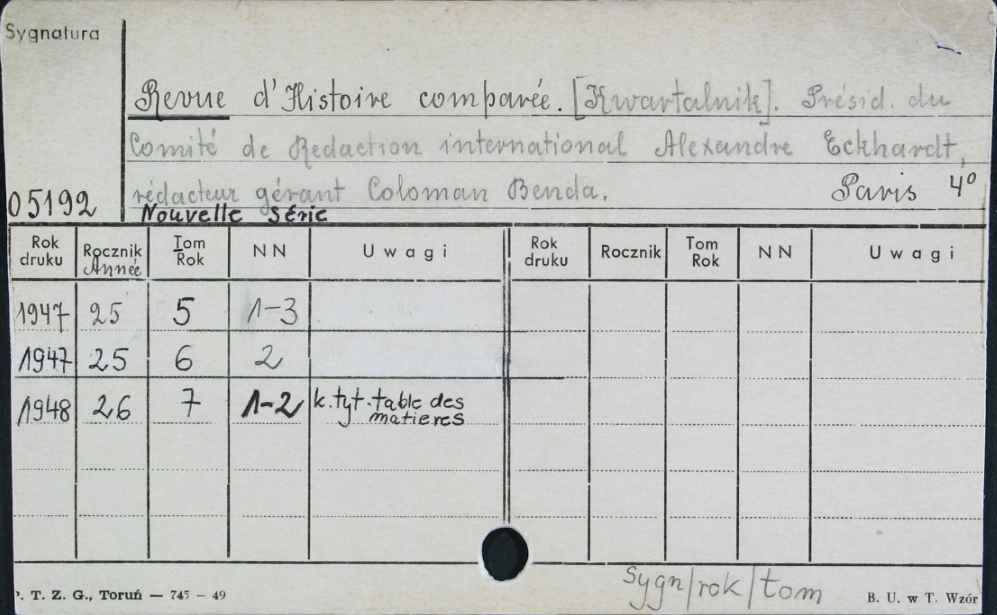 Sygnatura
Revue d'Histoire comparée. [Kwartalnik]. Présid. du
Comité de Redaction international Alexandre Eckhardt,
rédacteur gérant Coloman Benda. Paris 4º
05192 Nouvelle Série
Rok druku Rocznik Année Tom Rok NN Uwagi Rok druku Rocznik Tom Rok NN Uwagi
1947 25 5 1-3
1947 25 6 2
1948 26 7 1-2 k.tyt. table des
matieres
Sygn/rok/tom
P. T. Z. G., Toruń — 745 – 49 B. U. w T. Wzór